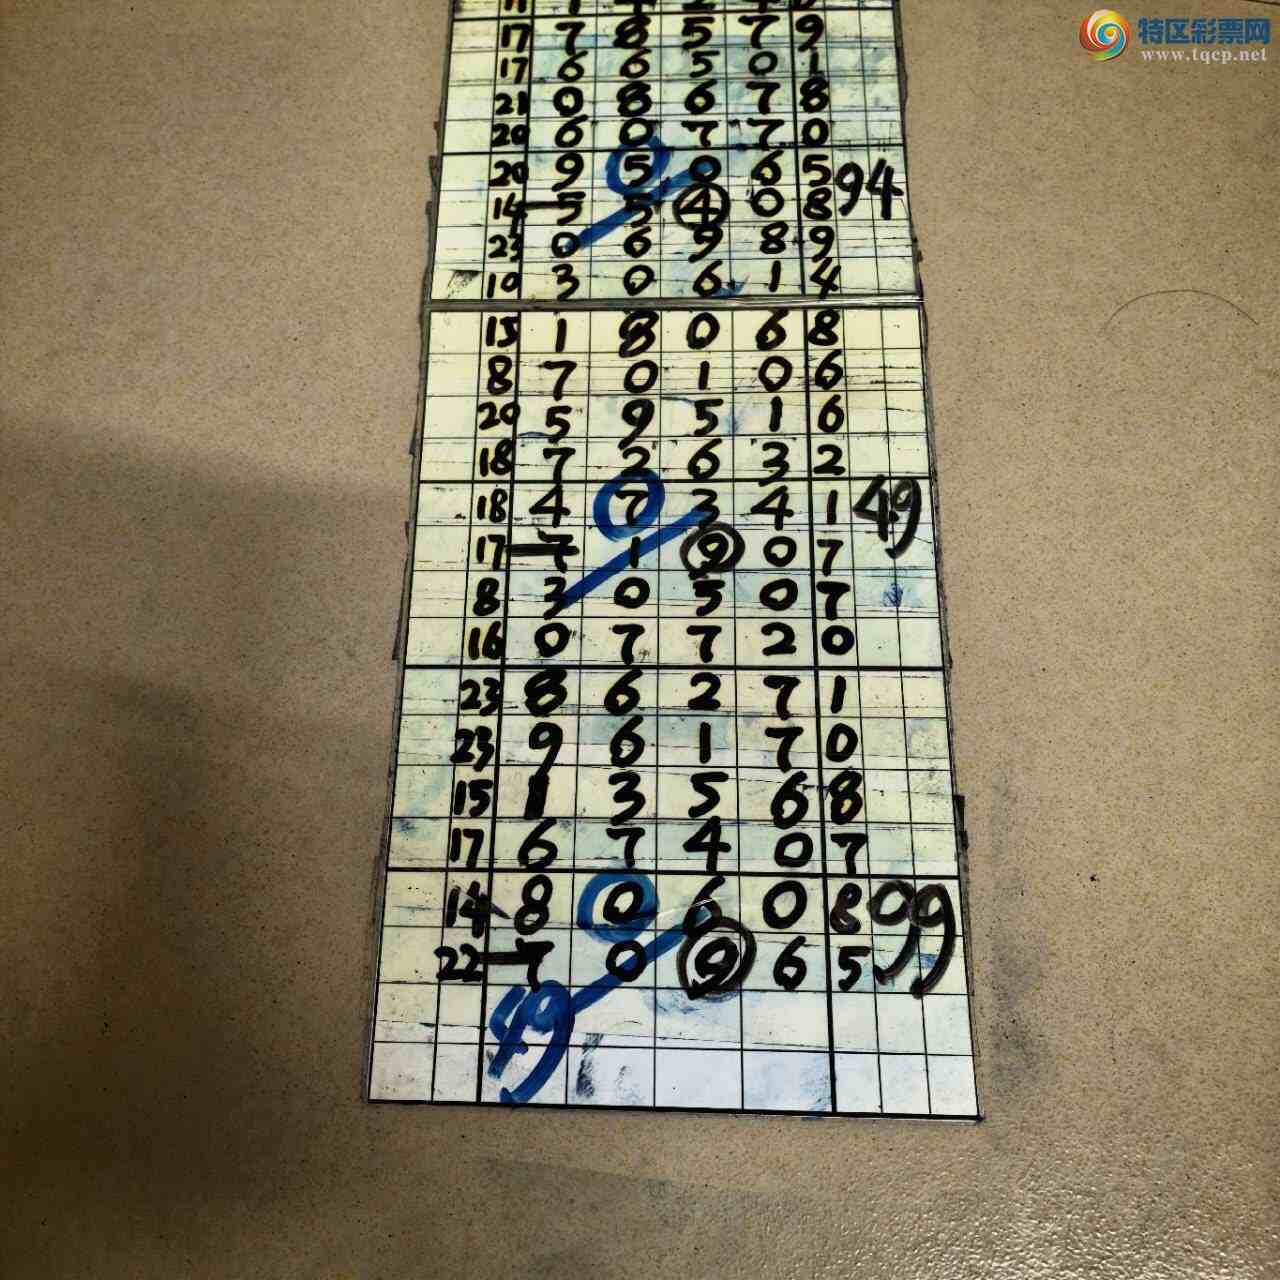 特区彩票网
www.tqcp.net
17 7 8 5 7 9
17 6 6 5 0 1
21 0 8 6 7 8
20 6 0 7 7 0
20 9 5 0 6 5 94
14 5 5 4 0 8
23 0 6 9 8 9
10 3 0 6 1 4
15 1 8 0 6 8
8 7 0 1 0 6
20 5 9 5 1 6
18 7 2 6 3 2
18 4 7 3 4 1 49
17 7 1 9 0 7
8 3 0 5 0 7
16 0 7 7 2 0
23 8 6 2 7 1
23 9 6 1 7 0
15 1 3 5 6 8
17 6 7 4 0 7
14 8 0 6 0 8 99
22 7 0 9 6 5
49